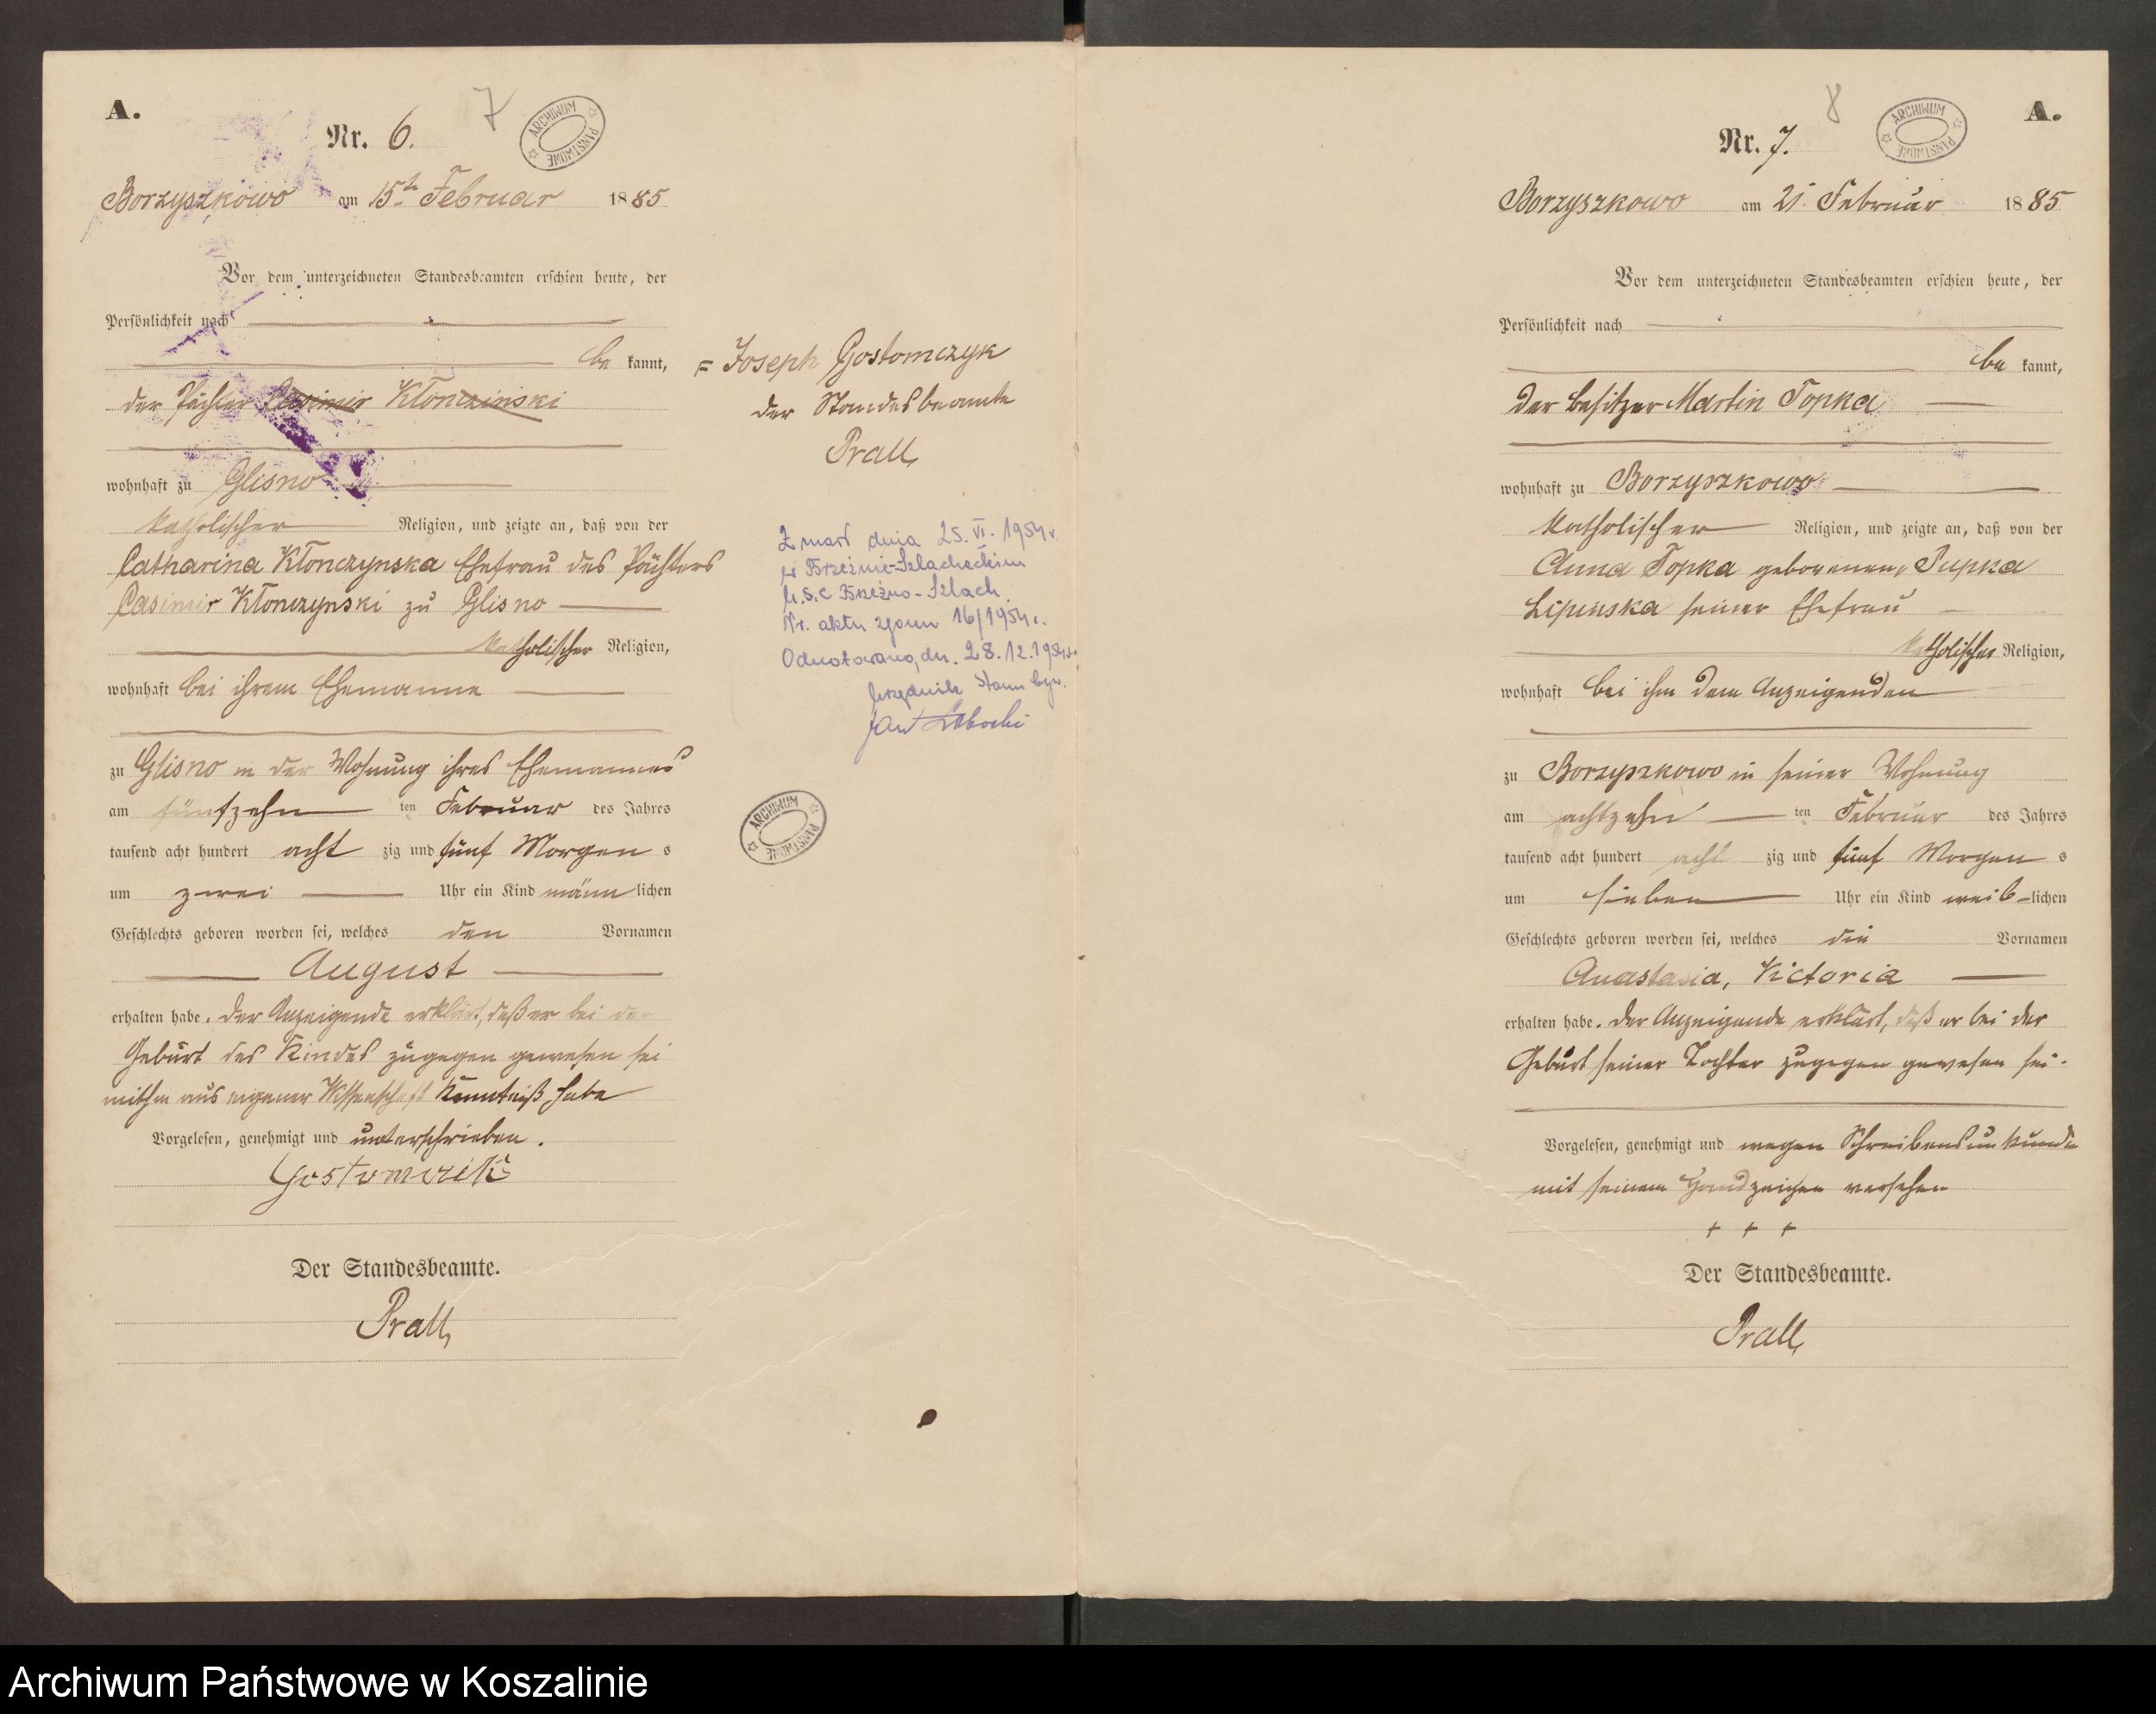 A.
Nr. 6.
7
ARCHIWUM PAŃSTWOWE
Borzyszkowo am 15t Februar 1885
Vor dem unterzeichneten Standesbeamten erschien heute, der
Persönlichkeit nach
be kannt,
der Pächter Casimir Kłonczinski
wohnhaft zu Glisno
katholischer Religion, und zeigte an, daß von der
Catharina Kłonczynska Ehefrau des Pächters
Casimir Kłonczynski zu Glisno
katholischer Religion,
wohnhaft bei ihrem Ehemanne
zu Glisno in der Wohnung ihres Ehemannes
am fünfzehn ten Februar des Jahres
tausend acht hundert acht zig und fünf Morgen s
um zwei Uhr ein Kind männ lichen
Geschlechts geboren worden sei, welches den Vornamen
August
erhalten habe. Der Anzeigende erklärt, daß er bei der
Geburt des Kindes zugegen gewesen sei
mithin aus eigener Wissenschaft Kenntniß habe
Vorgelesen, genehmigt und unterschrieben.
Gostomczik
Der Standesbeamte.
Prall,
= Joseph Gostomczyk
der Standesbeamte
Prall,
Zmarł dnia 25. VI. 1954 r.
w Brzeźnie-Szlacheckim
U.S.C Brzeźno-Szlach.
Nr. aktu zgonu 16/1954 r.
Odnotowano, dn. 28.12.1954 r.
Urzędnik Stanu Cyw.
Jan
ARCHIWUM PAŃSTWOWE
A.
Nr. 7.
8
ARCHIWUM PAŃSTWOWE
Borzyszkowo am 21 Februar 1885
Vor dem unterzeichneten Standesbeamten erschien heute, der
Persönlichkeit nach
be kannt,
der Besitzer Martin Topka
wohnhaft zu Borzyszkowo
katholischer Religion, und zeigte an, daß von der
Anna Topka geborenen Pupka
Lipinska seiner Ehefrau
katholischer Religion,
wohnhaft bei ihm dem Anzeigenden
zu Borzyszkowo in seiner Wohnung
am achtzehn ten Februar des Jahres
tausend acht hundert acht zig und fünf Morgen s
um sieben Uhr ein Kind weib-lichen
Geschlechts geboren worden sei, welches die Vornamen
Anastasia, Victoria
erhalten habe. Der Anzeigende erklärt, daß er bei der
Geburt seiner Tochter zugegen gewesen sei.
Vorgelesen, genehmigt und wegen Schreibensunkunde
mit seinem Handzeichen versehen
+ + +
Der Standesbeamte.
Prall,
Archiwum Państwowe w Koszalinie